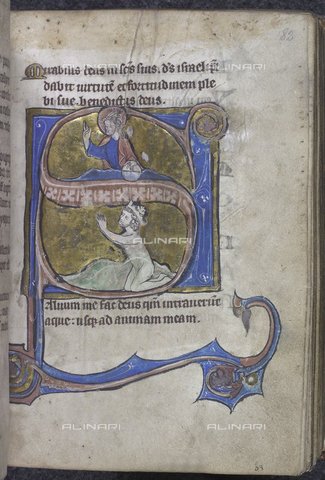 82
Mirabilis deus in scis suis. ds israel ipe
dabit uirtutē et fortitudinem ple
bi sue. benedictus deus.
ALINARI
ALINARI
Saluum me fac deus qm intrauerunt
aque: usq; ad animam meam.
ALINARI
ALINARI